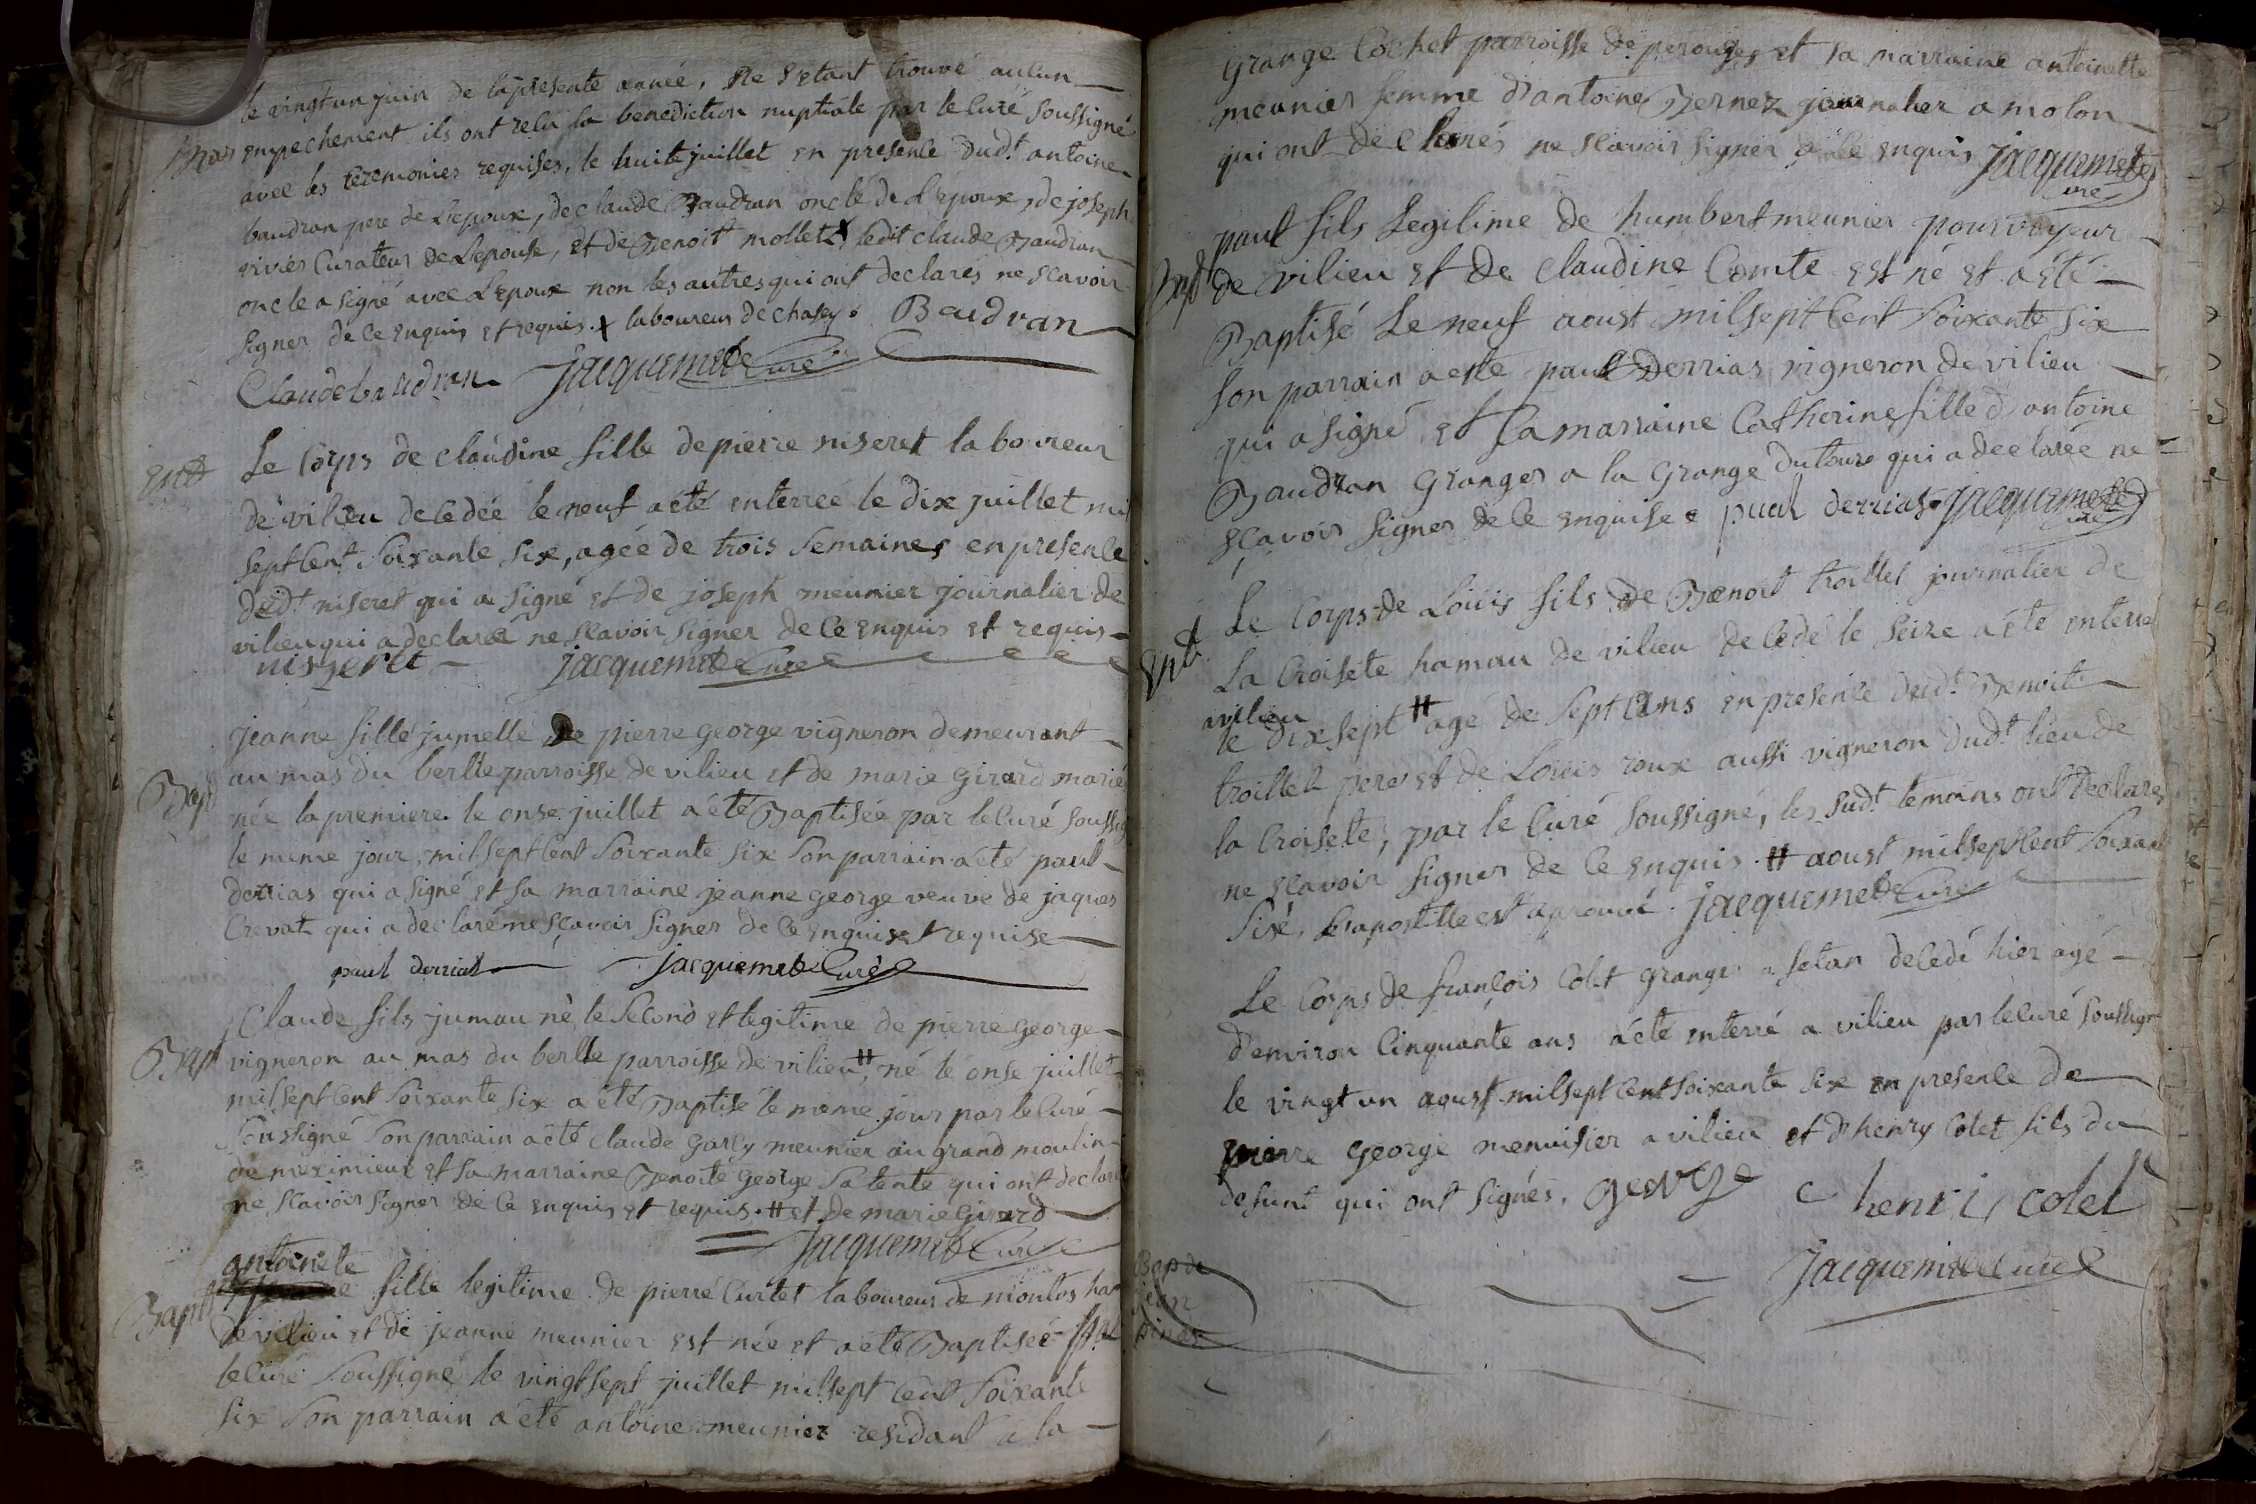 le vingt un juin de la presente année, Ne s'etant trouvé aucun
Mar
empechement ils ont recu la benediction nuptiale par le Curé soussigné
avec les ceremonies requises, le huit juillet en presence dud.t antoine
baudran pere de L'epoux, de claude Baudran oncle de L'epoux, de joseph
rivier Curateur de L'epouse, et de Benoit mollet X ledit claude Baudran
oncle a signé avec L'epoux non les autres qui ont declarés ne scavoir
signer de ce enquis et requis. X laboureur de chasey. Baudran
Claude baudran Jacquemet Curé
Ent
Le Corps de claudine fille de pierre niseret laboureur
de vilieu decedée le neuf a été enterreé le dix juillet mil
sept Cent soixante six, agée de trois semaines en presence
dud.t niseret qui a signé et de joseph meunier journalier de
vilieu qui a declaré ne scavoir signer de ce enquis et requis
niszeret Jacquemet Curé
jeanne fille jumelle de pierre george vigneron demeurant
au mas du berlie parroisse de vilieu et de marie girard mariés
Bapt
née la premiere le onse juillet a été Baptisée par le Curé soussig
le meme jour, mil sept Cent soixante six son parrain a été paul
derrias qui a signé et sa marraine jeanne george veuve de jaques
Crevat qui a declaré ne scavoir signer de ce enquise et requise
paul derrias Jacquemet Curé
Claude fils jumau né le second et legitime de pierre george
Bapt
vigneron au mas du berlie parroisse de vilieu #, né le onse juillet
mil sept Cent soixante six a été Baptisé le meme jour par le Curé
soussigné son parrain a été claude garcy meunier au grand moulin
de meximieux et sa marraine Benoite george sa tente qui ont declaré
ne scavoir signer de ce enquis et requis. # et de marie girard
Jacquemet Curé
antoinete
Bapt
fille legitime de pierre Curtet laboureur de moulos ham
de vilieu et de jeanne meunier est née et a été Baptisée par
le Curé soussigné le vingt sept juillet mil sept Cent soixante
six son parrain a été antoine meunier residant a la
grange Cochet parroisse de perouges et sa marraine antoinette
meunier femme d'antoine Bernez journalier a molon
qui ont declarés ne scavoir signer de ce enquis Jacquemet
curé
paul fils Legitime de humbert meunier pourvoyeur
Bapt
de vilieu et de claudine Comte est né et a été
Baptisé Le neuf aoust mil sept Cent soixante six
son parrain a esté paul Derrias vigneron de vilieu
qui a signé et sa marraine Catherine fille d'antoine
Baudran Granger a la Grange dutour qui a declarée ne
scavoir signer de ce enquise paul derrias Jacquemet
curé
Le Corps de Louis fils de Benoit troillet journalier de
Ent
La Croisete hamau de vilieu decedé le seize a été enterré
a vilieu
le dix sept # agé de sept ans en presence dud.t Benoit
troillet pere et de Louis roux aussi vigneron dud.t lieu de
la Croisete, par le Curé soussigné, les sud.t temoins ont declarés
ne scavoir signer de ce enquis. # aoust mil sept Cent soixante
six, Les apostille est aprouvé. Jacquemet Curé
Le Corps de françois Colet granger a setan decedé hier agé
d'environ Cinquante ans a été enterré a vilieu par le Curé soussigné
le vingt un aoust mil sept Cent soixante six en presence de
pierre george menuisier a vilieu et d'henry Colet fils du
defunt qui ont signés. george henri colet
Jacquemet Curé
Bap de
jean